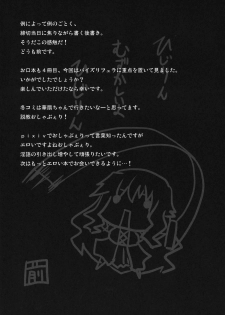 例によって例のごとく、
締切当日に焦りながら書く後書き。
そうだこの感触だ！
どうも前です。
お口本も４冊目。今回はパイズリフェラに重点を置いて見ました。
いかがでしたでしょうか？
楽しんでいただけたなら幸いです。
冬コミは華扇ちゃんで行きたいなーと思ってます。
説教おしゃぶぇり！
ｐｉｘｉｖでおしゃぶぇりって言葉知ったんですが
エロいですよねおしゃぶぇり。
淫語の引き出し増やして頑張りたいです。
次はもっとエロい本でお会いできるように…！
前